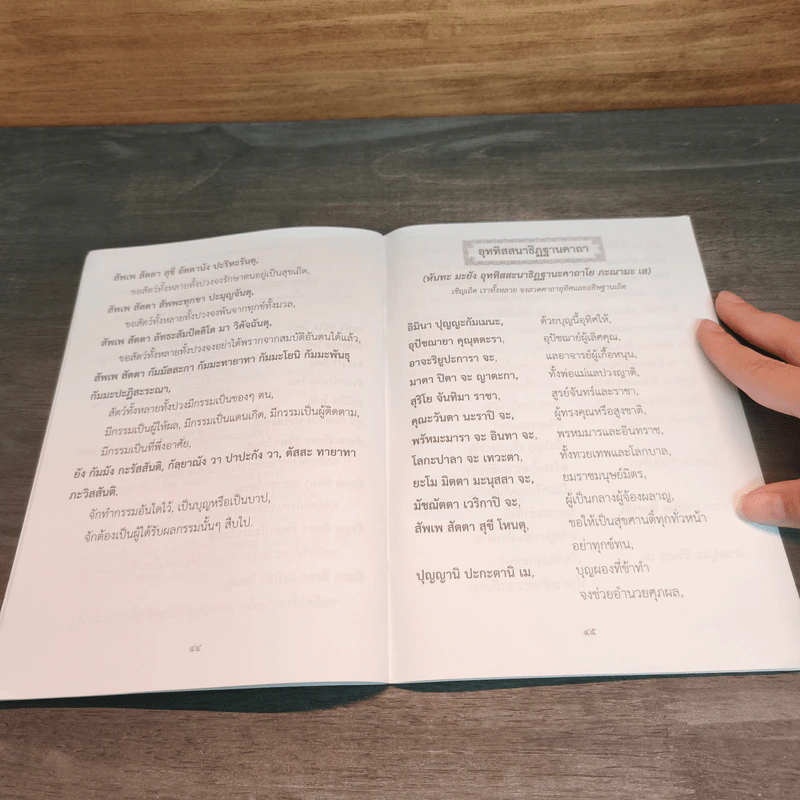 สัพเพ สัตตา สุขี อัตตานัง ปะริหะรันตุ,
ขอสัตว์ทั้งหลายทั้งปวงจงรักษาตนอยู่เป็นสุขเถิด,
สัพเพ สัตตา สัพพะทุกขา ปะมุญจันตุ,
ขอสัตว์ทั้งหลายทั้งปวงจงพ้นจากทุกข์ทั้งมวล,
สัพเพ สัตตา ลัทธะสัมปัตติโต มา วิคัจฉันตุ,
ขอสัตว์ทั้งหลายทั้งปวงจงอย่าได้พรากจากสมบัติอันตนได้แล้ว,
สัพเพ สัตตา กัมมัสสะกา กัมมะทายาทา กัมมะโยนิ กัมมะพันธุ
กัมมะปะฏิสะระณา,
สัตว์ทั้งหลายทั้งปวงมีกรรมเป็นของๆ ตน,
มีกรรมเป็นผู้ให้ผล, มีกรรมเป็นแดนเกิด, มีกรรมเป็นผู้ติดตาม,
มีกรรมเป็นที่พึ่งอาศัย,
ยัง กัมมัง กะรัสสันติ, กัลฺยาณัง วา ปาปะกัง วา, ตัสสะ ทายาทา
ภะวิสสันติ.
จักทำกรรมอันใดไว้, เป็นบุญหรือเป็นบาป,
จักต้องเป็นผู้ได้รับผลกรรมนั้นๆ สืบไป.
๔๔
อุททิสสนาธิฏฐานคาถา
(หันทะ มะยัง อุททิสสะนาธิฏฐานะคาถาโย ภะณามะ เส)
เชิญเถิด เราทั้งหลาย จงสวดคาถาอุทิศและอธิษฐานเถิด
อิมินา ปุญญะกัมเมนะ, ด้วยบุญนี้อุทิศให้,
อุปัชฌายา คุณุตตะรา, อุปัชฌาย์ผู้เลิศคุณ,
อาจะริยูปะการา จะ, แลอาจารย์ผู้เกื้อหนุน,
มาตา ปิตา จะ ญาตะกา, ทั้งพ่อแม่แลปวงญาติ,
สุริโย จันทิมา ราชา, สูรย์จันทร์และราชา,
คุณะวันตา นะราปิ จะ, ผู้ทรงคุณหรือสูงชาติ,
พรัหมะมารา จะ อินทา จะ, พรหมมารและอินทราช,
โลกะปาลา จะ เทวะตา, ทั้งทวยเทพและโลกบาล,
ยะโม มิตตา มะนุสสา จะ, ยมราชมนุษย์มิตร,
มัชฌัตตา เวริกาปิ จะ, ผู้เป็นกลางผู้จ้องผลาญ,
สัพเพ สัตตา สุขี โหนตุ, ขอให้เป็นสุขศานติ์ทุกทั่วหน้า
อย่าทุกข์ทน,
ปุญญานิ ปะกะตานิ เม, บุญผองที่ข้าทำ
จงช่วยอำนวยศุภผล,
๔๕